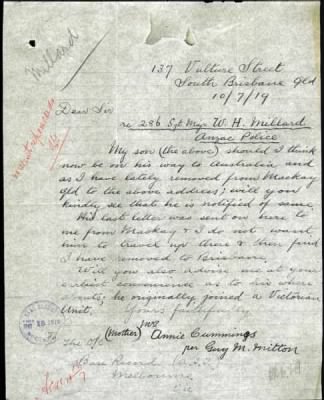 Millard
137 Vulture Street
South Brisbane Qld
10/7/19
Dear Sir
re 286 Sgt Major W. H. Millard
Anzac Police
My son (the above) should I think
now be on his way to Australia and
as I have lately removed from Mackay
Qld to the above address, will you
kindly see that he is notified of same.
His last letter was sent on here to
me from Mackay & I do not want
him to travel up there & then find
I have removed to Brisbane.
Will you also advise me at your
earliest convenience as to his where
abouts; he originally joined a Victorian
Unit.
Yours faithfully
(Mother) Mrs Annie Cummings
per Guy M. Mitton
To The O/C
Base Record
Melbourne
Vic